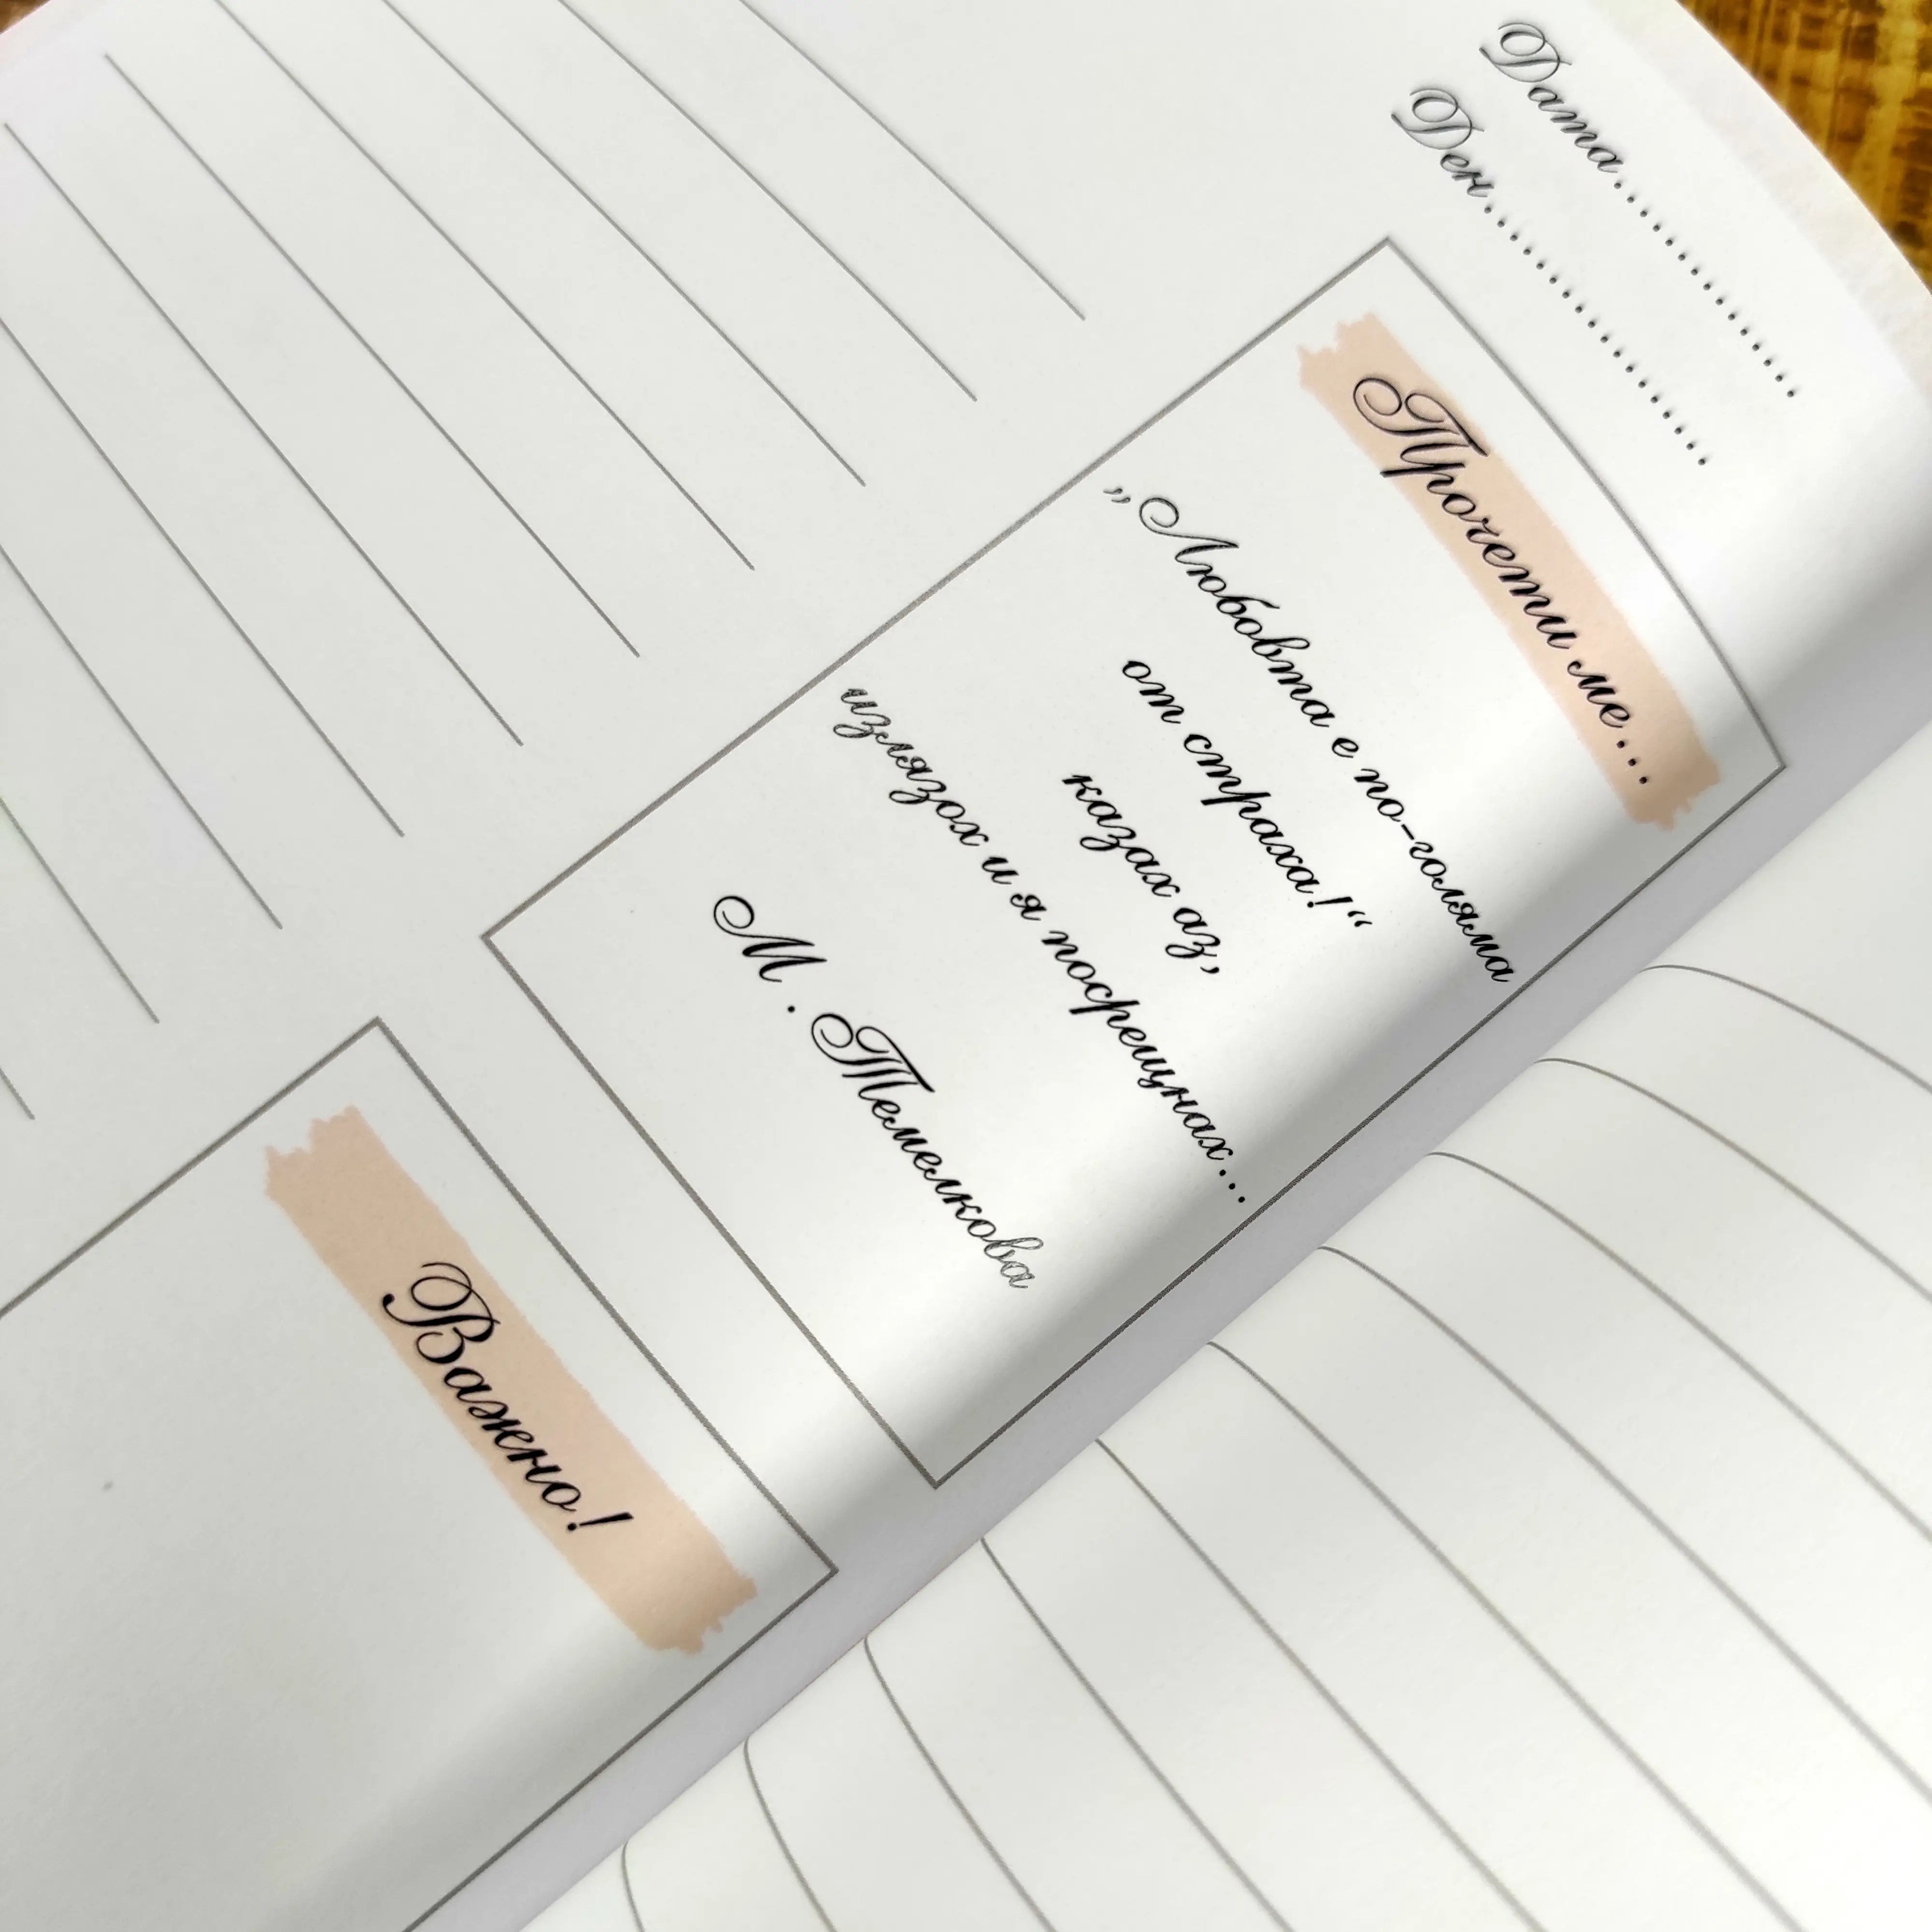 Дата....................
Ден....................
Прочети ме...
„Любовта е по-голяма
от страха!“
казах аз,
излязох и я посрещнах...
М. Темелкова
Важно!